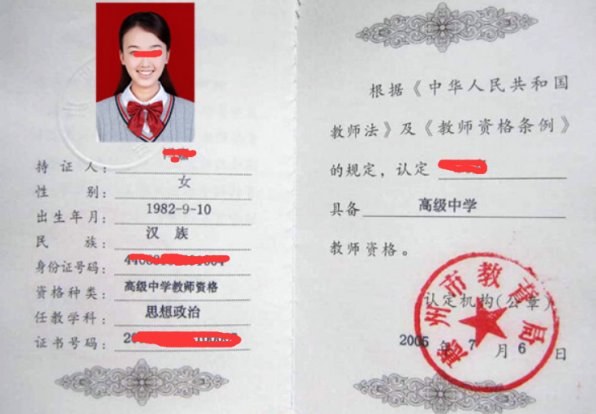 持证人：
性 别：女
出生年月：1982-9-10
民 族：汉 族
身份证号码：
资格种类：高级中学教师资格
任教学科：思想政治
证书号码：
根据《中华人民共和国
教师法》及《教师资格条例》
的规定，认定
具备 高级中学
教师资格。
认定机构(公章)
州市教育局
2005 年 7 月 6 日